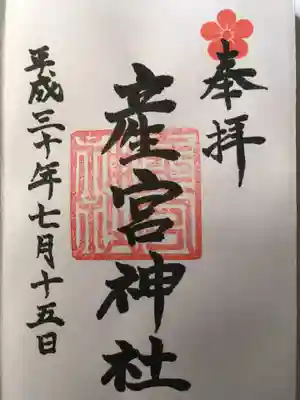 奉拝
産宮神社
平成三十年七月十五日